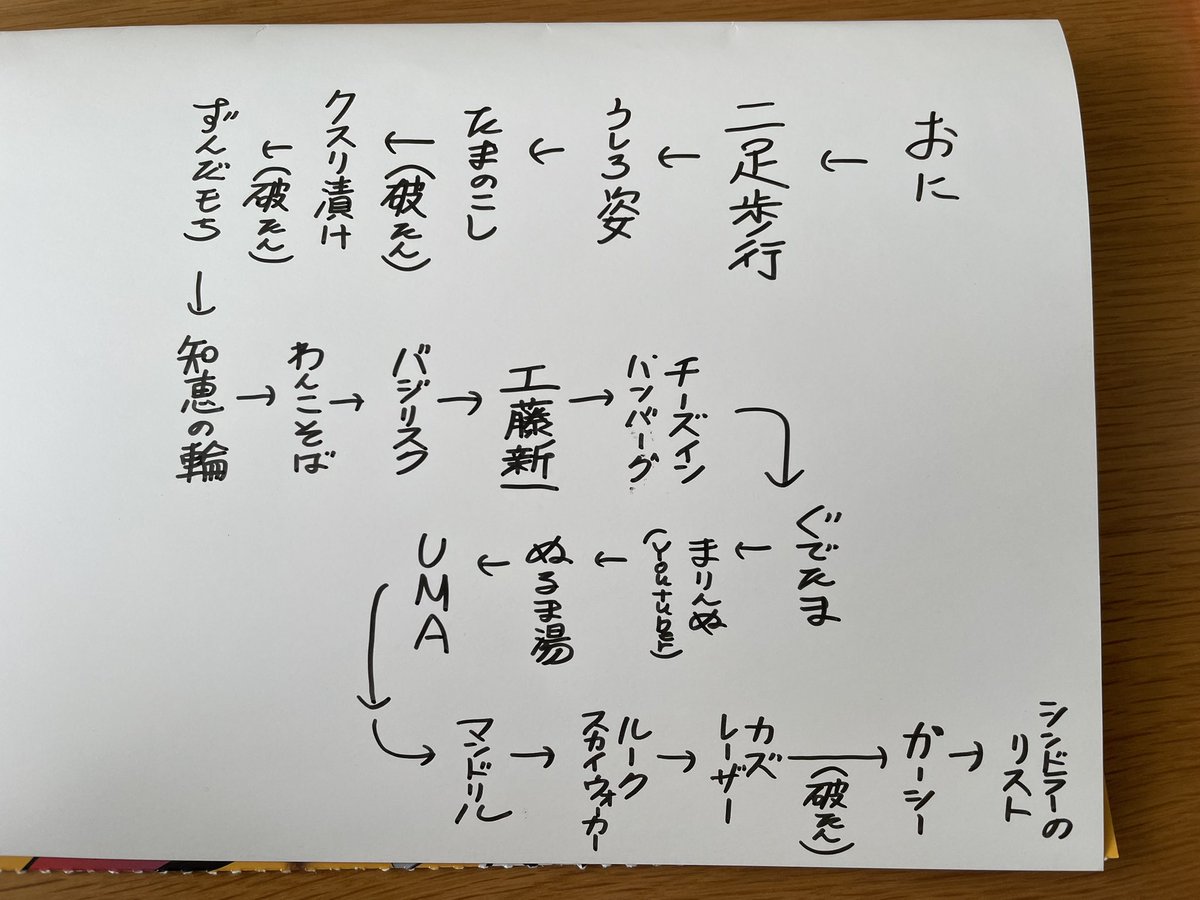 おに
二足歩行
うしろ姿
たまのこし
(破たん)
クスリ漬け
(破たん)
ずんだもち
知恵の輪
わんこそば
バジリスク
工藤新一
チーズイン
ハンバーグ
ぐでたま
まりんぬ
(Youtuber)
ぬるま湯
UMA
マンドリル
ルーク
スカイウォーカー
カズ
レーザー
(破たん)
ガーシー
シンドラーの
リスト